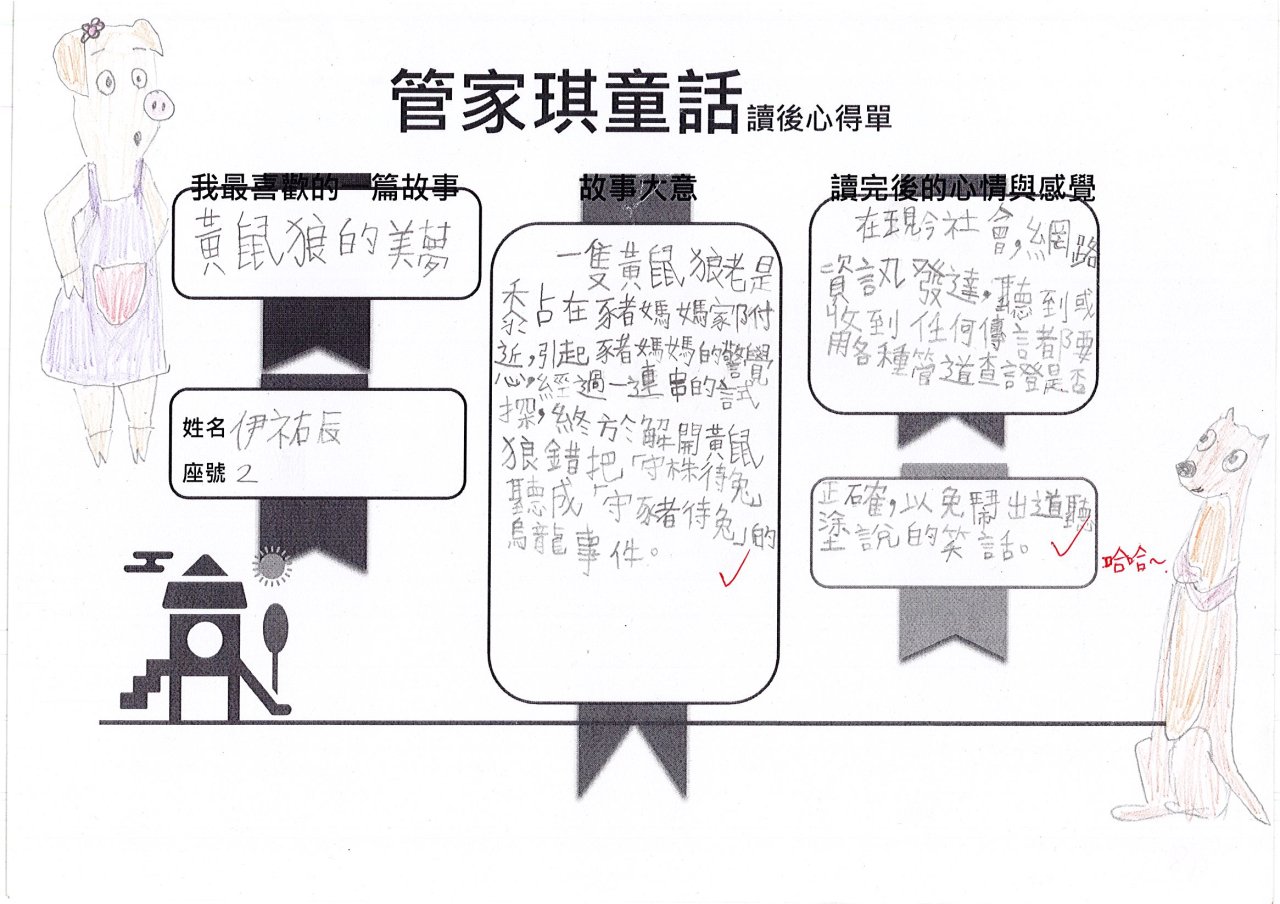 管家琪童話讀後心得單
我最喜歡的一篇故事
黃鼠狼的美夢
姓名 伊祐辰
座號 2
故事大意
一隻黃鼠狼老是
占在豬媽媽家附
近,引起豬媽媽的警覺
心,經過一連串的試
探,終於解開黃鼠
狼錯把「守株待兔」
聽成「守豬待兔」的
烏龍事件。
讀完後的心情與感覺
在現今社會,網路
資訊發達,聽到或
收到任何傳言都要
用各種管道查證是否
正確,以免鬧出道聽
塗說的笑話。
哈哈~